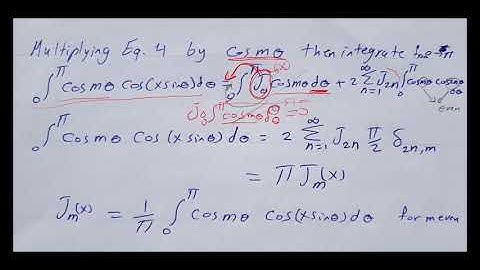 Multiplying Eq. 4 by cos mθ then integrate from 0→π
₀∫^π cos mθ cos(x sinθ) dθ = ₀∫^π J₀(x) cos mθ dθ + 2 ∑_{n=1}^∞ J_{2n} ₀∫^π cos mθ cos 2nθ
J₀ ∫₀^π cos mθ dθ = 0
₀∫^π cos mθ cos(x sinθ) dθ = 2 ∑_{n=1}^∞ J_{2n} π/2 δ_{2n,m}
= π J_m(x)
J_m(x) = 1/π ₀∫^π cos mθ cos(x sinθ) dθ for m even